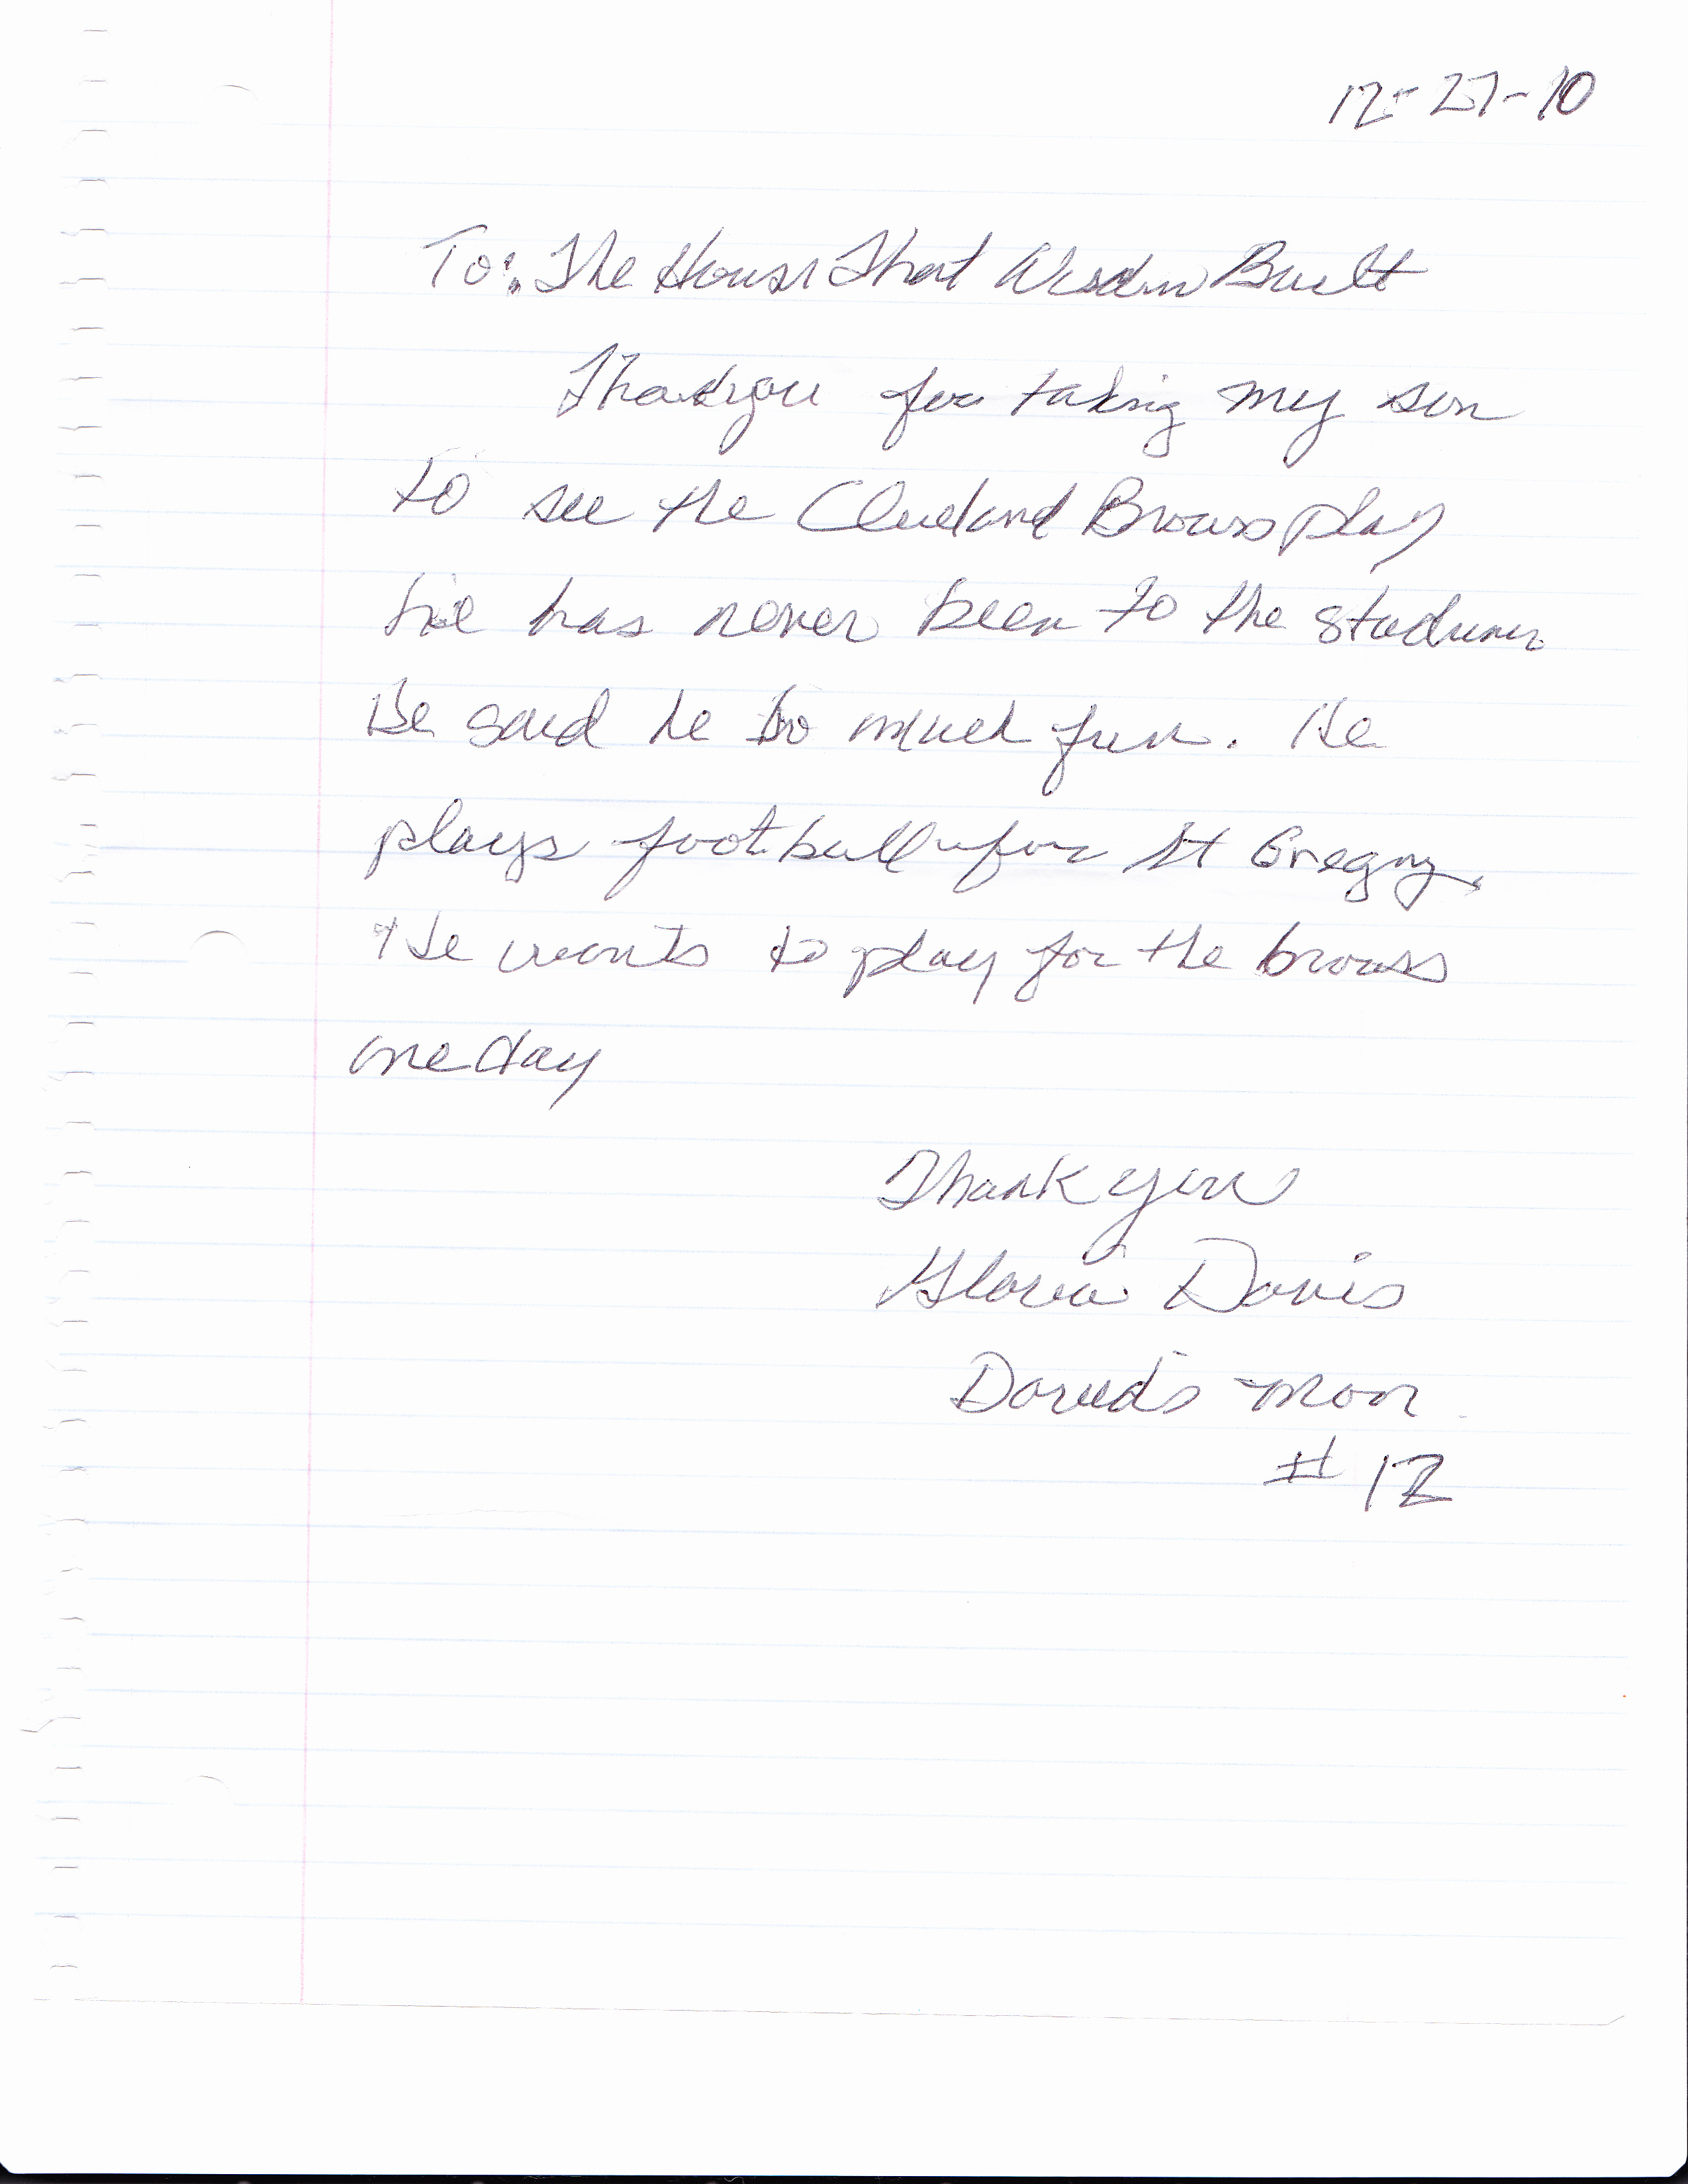 12-27-10
To: The House That Wisdom Built
Thankyou for taking my son
to see the Cleveland Browns play
he has never been to the stadium
He said he so much fun. He
plays football for St Gregory.
He wants to play for the browns
one day
Thank you
Gloria Davis
David's mom
# 12